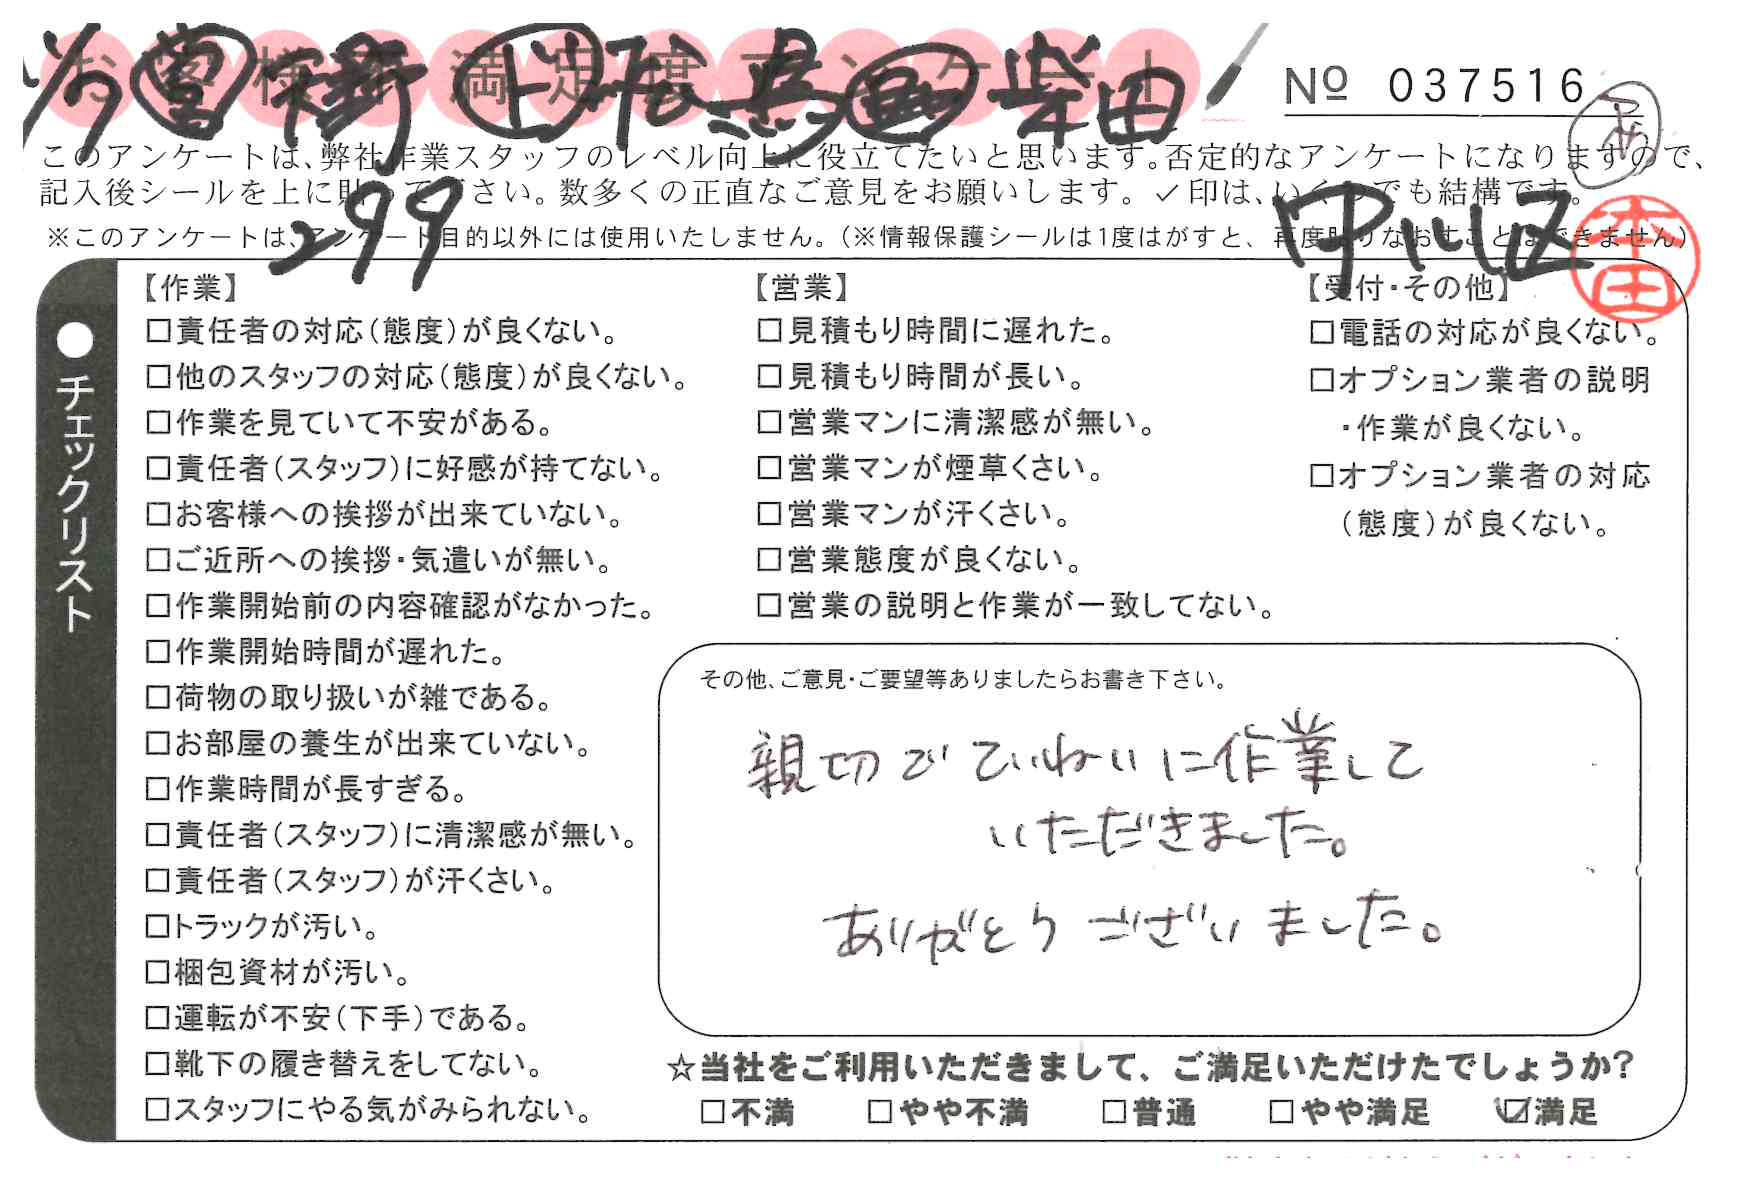 お客様満足度アンケート
No 037516
このアンケートは、弊社作業スタッフのレベル向上に役立てたいと思います。否定的なアンケートになりますので、
記入後シールを上に貼って下さい。数多くの正直なご意見をお願いします。✓印は、いくつでも結構です。
299
中川区
※このアンケートは、アンケート目的以外には使用いたしません。(※情報保護シールは1度はがすと、再度貼りなおすことはできません)
本田
●チェックリスト
【作業】
□責任者の対応(態度)が良くない。
□他のスタッフの対応(態度)が良くない。
□作業を見ていて不安がある。
□責任者(スタッフ)に好感が持てない。
□お客様への挨拶が出来ていない。
□ご近所への挨拶・気遣いが無い。
□作業開始前の内容確認がなかった。
□作業開始時間が遅れた。
□荷物の取り扱いが雑である。
□お部屋の養生が出来ていない。
□作業時間が長すぎる。
□責任者(スタッフ)に清潔感が無い。
□責任者(スタッフ)が汗くさい。
□トラックが汚い。
□梱包資材が汚い。
□運転が不安(下手)である。
□靴下の履き替えをしてない。
□スタッフにやる気がみられない。
【営業】
□見積もり時間に遅れた。
□見積もり時間が長い。
□営業マンに清潔感が無い。
□営業マンが煙草くさい。
□営業マンが汗くさい。
□営業態度が良くない。
□営業の説明と作業が一致してない。
【受付・その他】
□電話の対応が良くない。
□オプション業者の説明
・作業が良くない。
□オプション業者の対応
(態度)が良くない。
その他、ご意見・ご要望等ありましたらお書き下さい。
親切でていねいに作業して
いただきました。
ありがとうございました。
☆当社をご利用いただきまして、ご満足いただけたでしょうか?
□不満 □やや不満 □普通 □やや満足 ☑満足